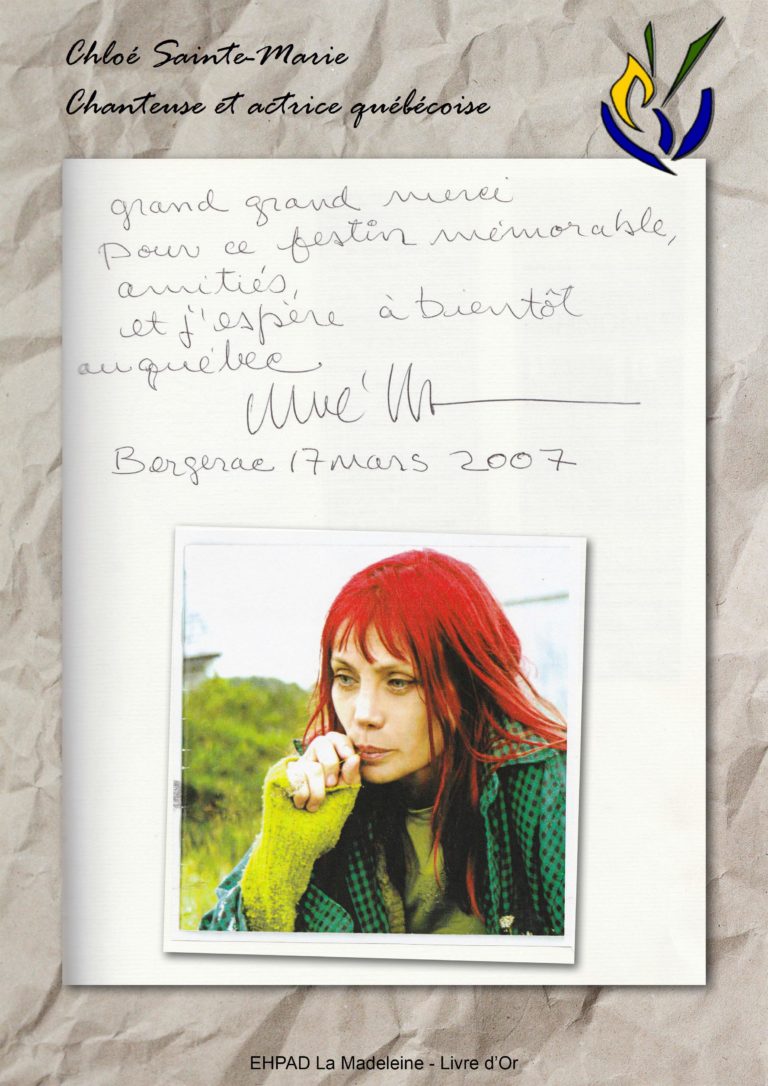 Chloé Sainte-Marie
Chanteuse et actrice québécoise
grand grand merci
pour ce festin mémorable,
amitiés,
et j'espère à bientôt
au québec
Bergerac 17 mars 2007
EHPAD La Madeleine - Livre d'Or